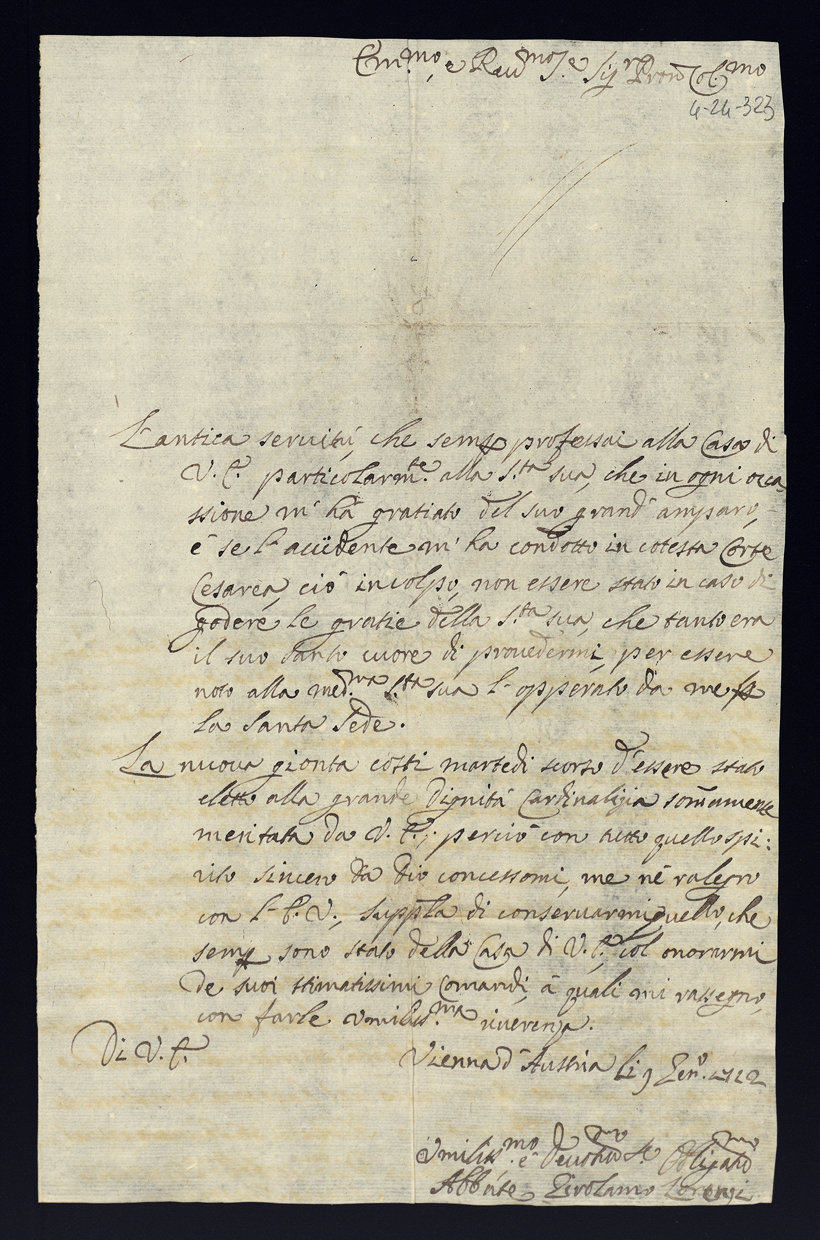 Em.mo, e Rau.mo S.e Sig.r Pron Col.mo
4-24-323
L'antica seruitù, che semp professai alla Casa di
V. E. particolarm.te alla S.tà sua, che in ogni occa
ssione m' hà gratiato del suo grand' amparo,
è se l'accidente m' ha condotto in cotesta Corte
Cesarea, ciò incolpo, non essere stato in caso di
godere le gratie della S.tà sua, che tanto era
il suo santo cuore di prouedermi, per essere
noto alla med.ma S.tà sua l'opperato da me p
la Santa Sede.
La nuova gionta costì martedì scorso d'essere stato
eletto alla grande Dignità Cardinalizia som̃amente
meritata da V. E.; perciò con tutto quello spi:
rito sincero da Dio concessomi, me nè ralegro
con l'E. V., suppla di conservarmi quello, che
semp sono stato della Casa di V. E. col onorarmi
de suoi stimatissimi Comandi, à quali mi rassegno,
con farle vmiliss.ma riuerenza.
Di V. E.
Vienna d'Austria li 9 Gen.o 1712
Vmiliss.mo è Deuotiss.mo Se Obligatis.mo
Abbate Girolamo Lorenzi